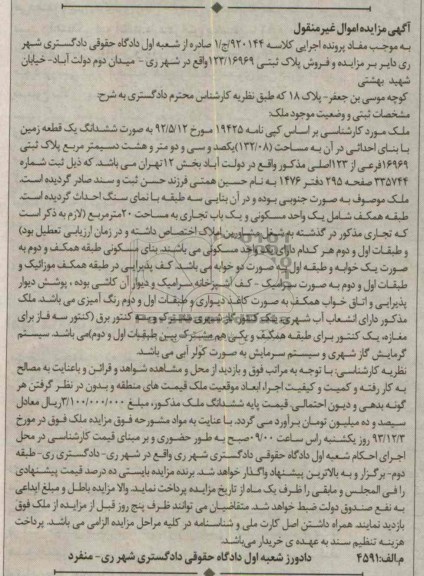 آگهی مزایده اموال غیر منقول
به موجب مفاد پرونده اجرایی کلاسه ۹۲۰۱۴۴/ج/۱ صادره از شعبه اول دادگاه حقوقی دادگستری شهر
ری دایر بر مزایده و فروش پلاک ثبتی ۱۲۳/۱۶۹۶۹ واقع در شهر ری - میدان دوم دولت آباد- خیابان
شهید بهشتی
کوچه موسی بن جعفر- پلاک ۱۸ که طبق نظریه کارشناس محترم دادگستری به شرح:
مشخصات ثبتی و وضعیت موجود ملک:
ملک مورد کارشناسی بر اساس کپی نامه ۱۹۴۲۵ مورخ ۹۲/۵/۱۲ به صورت ششدانگ یک قطعه زمین
با بنای احداثی در آن به مساحت (۱۳۲/۰۸) یکصد و سی و دو متر و هشت دسیمتر مربع پلاک ثبتی
۱۶۹۶۹ فرعی از ۱۲۳ اصلی مذکور واقع در دولت آباد بخش ۱۲ تهران می باشد. که ذیل ثبت شماره
۳۳۵۷۴۴ صفحه ۲۹۵ دفتر ۱۴۷۶ به نام حسین همتی فرزند حسن ثبت و سند صادر گردیده است.
ملک موصوف به صورت جنوبی بوده و در آن بنایی سه طبقه با نمای سنگ احداث گردیده است.
طبقه همکف شامل یک واحد مسکونی و یک باب تجاری به مساحت ۲۰ مترمربع (لازم به ذکر است
که تجاری مذکور در گذشته به شغل مشاورین املاک اختصاص داشته و در زمان ارزیابی تعطیل بود)
و طبقات اول و دوم هر کدام دارای یک واحد مسکونی می باشند. بنای مسکونی طبقه همکف و دوم به
صورت یک خوابه و طبقه اول به صورت دو خوابه می باشد. کف پذیرایی در طبقه همکف موزائیک و
طبقات اول و دوم به صورت سرامیک - کف آشپزخانه سرامیک و دیوار آن کاشی بوده، پوشش دیوار
پذیرایی و اتاق خواب همکف به صورت کاغذ دیواری و طبقات اول و دوم رنگ آمیزی می باشد. ملک
مذکور دارای انشعاب آب شهری، یک کنتور گاز شهری مشترک و سه کنتور برق (کنتور سه فاز برای
مغازه، یک کنتور برای طبقه همکف و یکی هم مشترک بین طبقات اول و دوم) می باشد. سیستم
گرمایش گاز شهری و سیستم سرمایش به صورت کولر آبی می باشد.
نظریه کارشناسی: با توجه به مراتب فوق و بازدید از محل و مشاهده شواهد و قرائن و با عنایت به مصالح
به کار رفته و کمیت و کیفیت اجرا، ابعاد موقعیت ملک قیمت های منطقه و بدون در نظر گرفتن هر
گونه بدهی و دیون احتمالی. قیمت پایه ششدانگ ملک مذکور، مبلغ ۳/۱۰۰/۰۰۰/۰۰۰ ریال معادل
سیصد و ده میلیون تومان برآورد می گردد. با عنایت به مواد مشروحه فوق مزایده ملک فوق در مورخ
۹۳/۱۲/۳ روز یکشنبه راس ساعت ۰۹/۰۰ صبح به طور حضوری و بر مبنای قیمت کارشناسی در محل
اجرای احکام شعبه اول دادگاه حقوقی دادگستری شهر ری واقع در شهر ری- دادگستری ری- طبقه
دوم- برگزار و به بالاترین پیشنهاد واگذار خواهد شد. برنده مزایده بایستی ده درصد قیمت پیشنهادی
را فی المجلس و مابقی را ظرف یک ماه از تاریخ مزایده پرداخت نماید. والا مزایده باطل و مبلغ ایداعی
به نفع صندوق دولت ضبط خواهد شد. متقاضیان می توانند ظرف پنج روز قبل از مزایده از ملک فوق
بازدید نمایند. همراه داشتن اصل کارت ملی و شناسنامه در کلیه مراحل مزایده الزامی می باشد. پرداخت
هزینه تنظیم سند به عهده ی خریدار می باشد.
م.الف: ۴۵۹۱ دادورز شعبه اول دادگاه حقوقی دادگستری شهر ری- منفرد